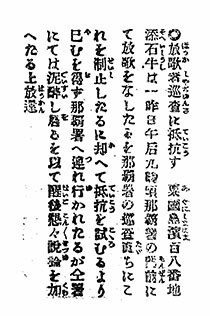 ◎放歌者巡査に抵抗す　粟國島濱百八番地
深石牛は一昨日午后九時頃那覇署の門前に
て放歌をなしたるを那覇署の巡査直ちにこ
れを制止したるに却へて抵抗を試むるより
已むを得す那覇署へ連れ行かれたるが仝署
にては泥醉し居るを以て醒後懇々説諭を加
へたる上放還